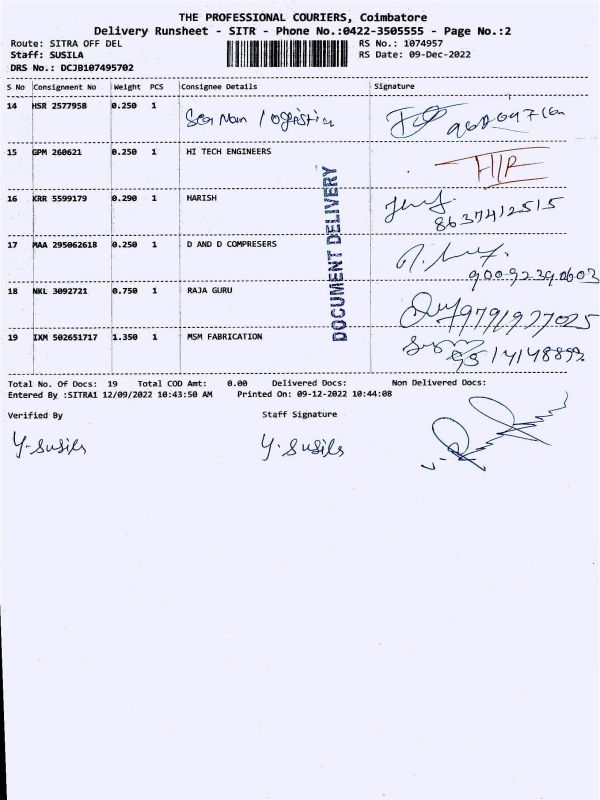 THE PROFESSIONAL COURIERS, Coimbatore
Delivery Runsheet - SITR - Phone No.:0422-3505555 - Page No.:2
Route: SITRA OFF DEL RS No.: 1074957
Staff: SUSILA RS Date: 09-Dec-2022
DRS No.: DCJB107495702
S No Consignment No Weight PCS Consignee Details Signature
14 HSR 2577958 0.250 1 Logistics
15 GPM 260621 0.250 1 HI TECH ENGINEERS
16 KRR 5599179 0.290 1 HARISH 8637412515
17 MAA 295062618 0.250 1 D AND D COMPRESERS
18 NKL 3092721 0.750 1 RAJA GURU 9791927025
19 IXM 502651717 1.350 1 MSM FABRICATION
DOCUMENT DELIVERY
Total No. Of Docs: 19 Total COD Amt: 0.00 Delivered Docs: Non Delivered Docs:
Entered By :SITRA1 12/09/2022 10:43:50 AM Printed On: 09-12-2022 10:44:08
Verified By Staff Signature
Y-Susila Y. Susila